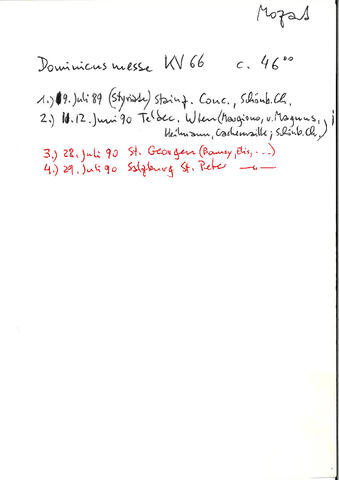 Mozart
Dominicusmesse KV 66 c. 46⁰⁰
1.) 9. Juli 89 (Styriarte) Stainz. Conc., Schönb.Ch.
2.) 12. Juni 90 Teldec. Wien (Margiono, v. Magnus,
Heilmann, Cachemaille; Schönb.Ch.)
3.) 28. Juli 90 St. Georgen (Bonney, Elis, ...)
4.) 29. Juli 90 Salzburg St. Peter —"—